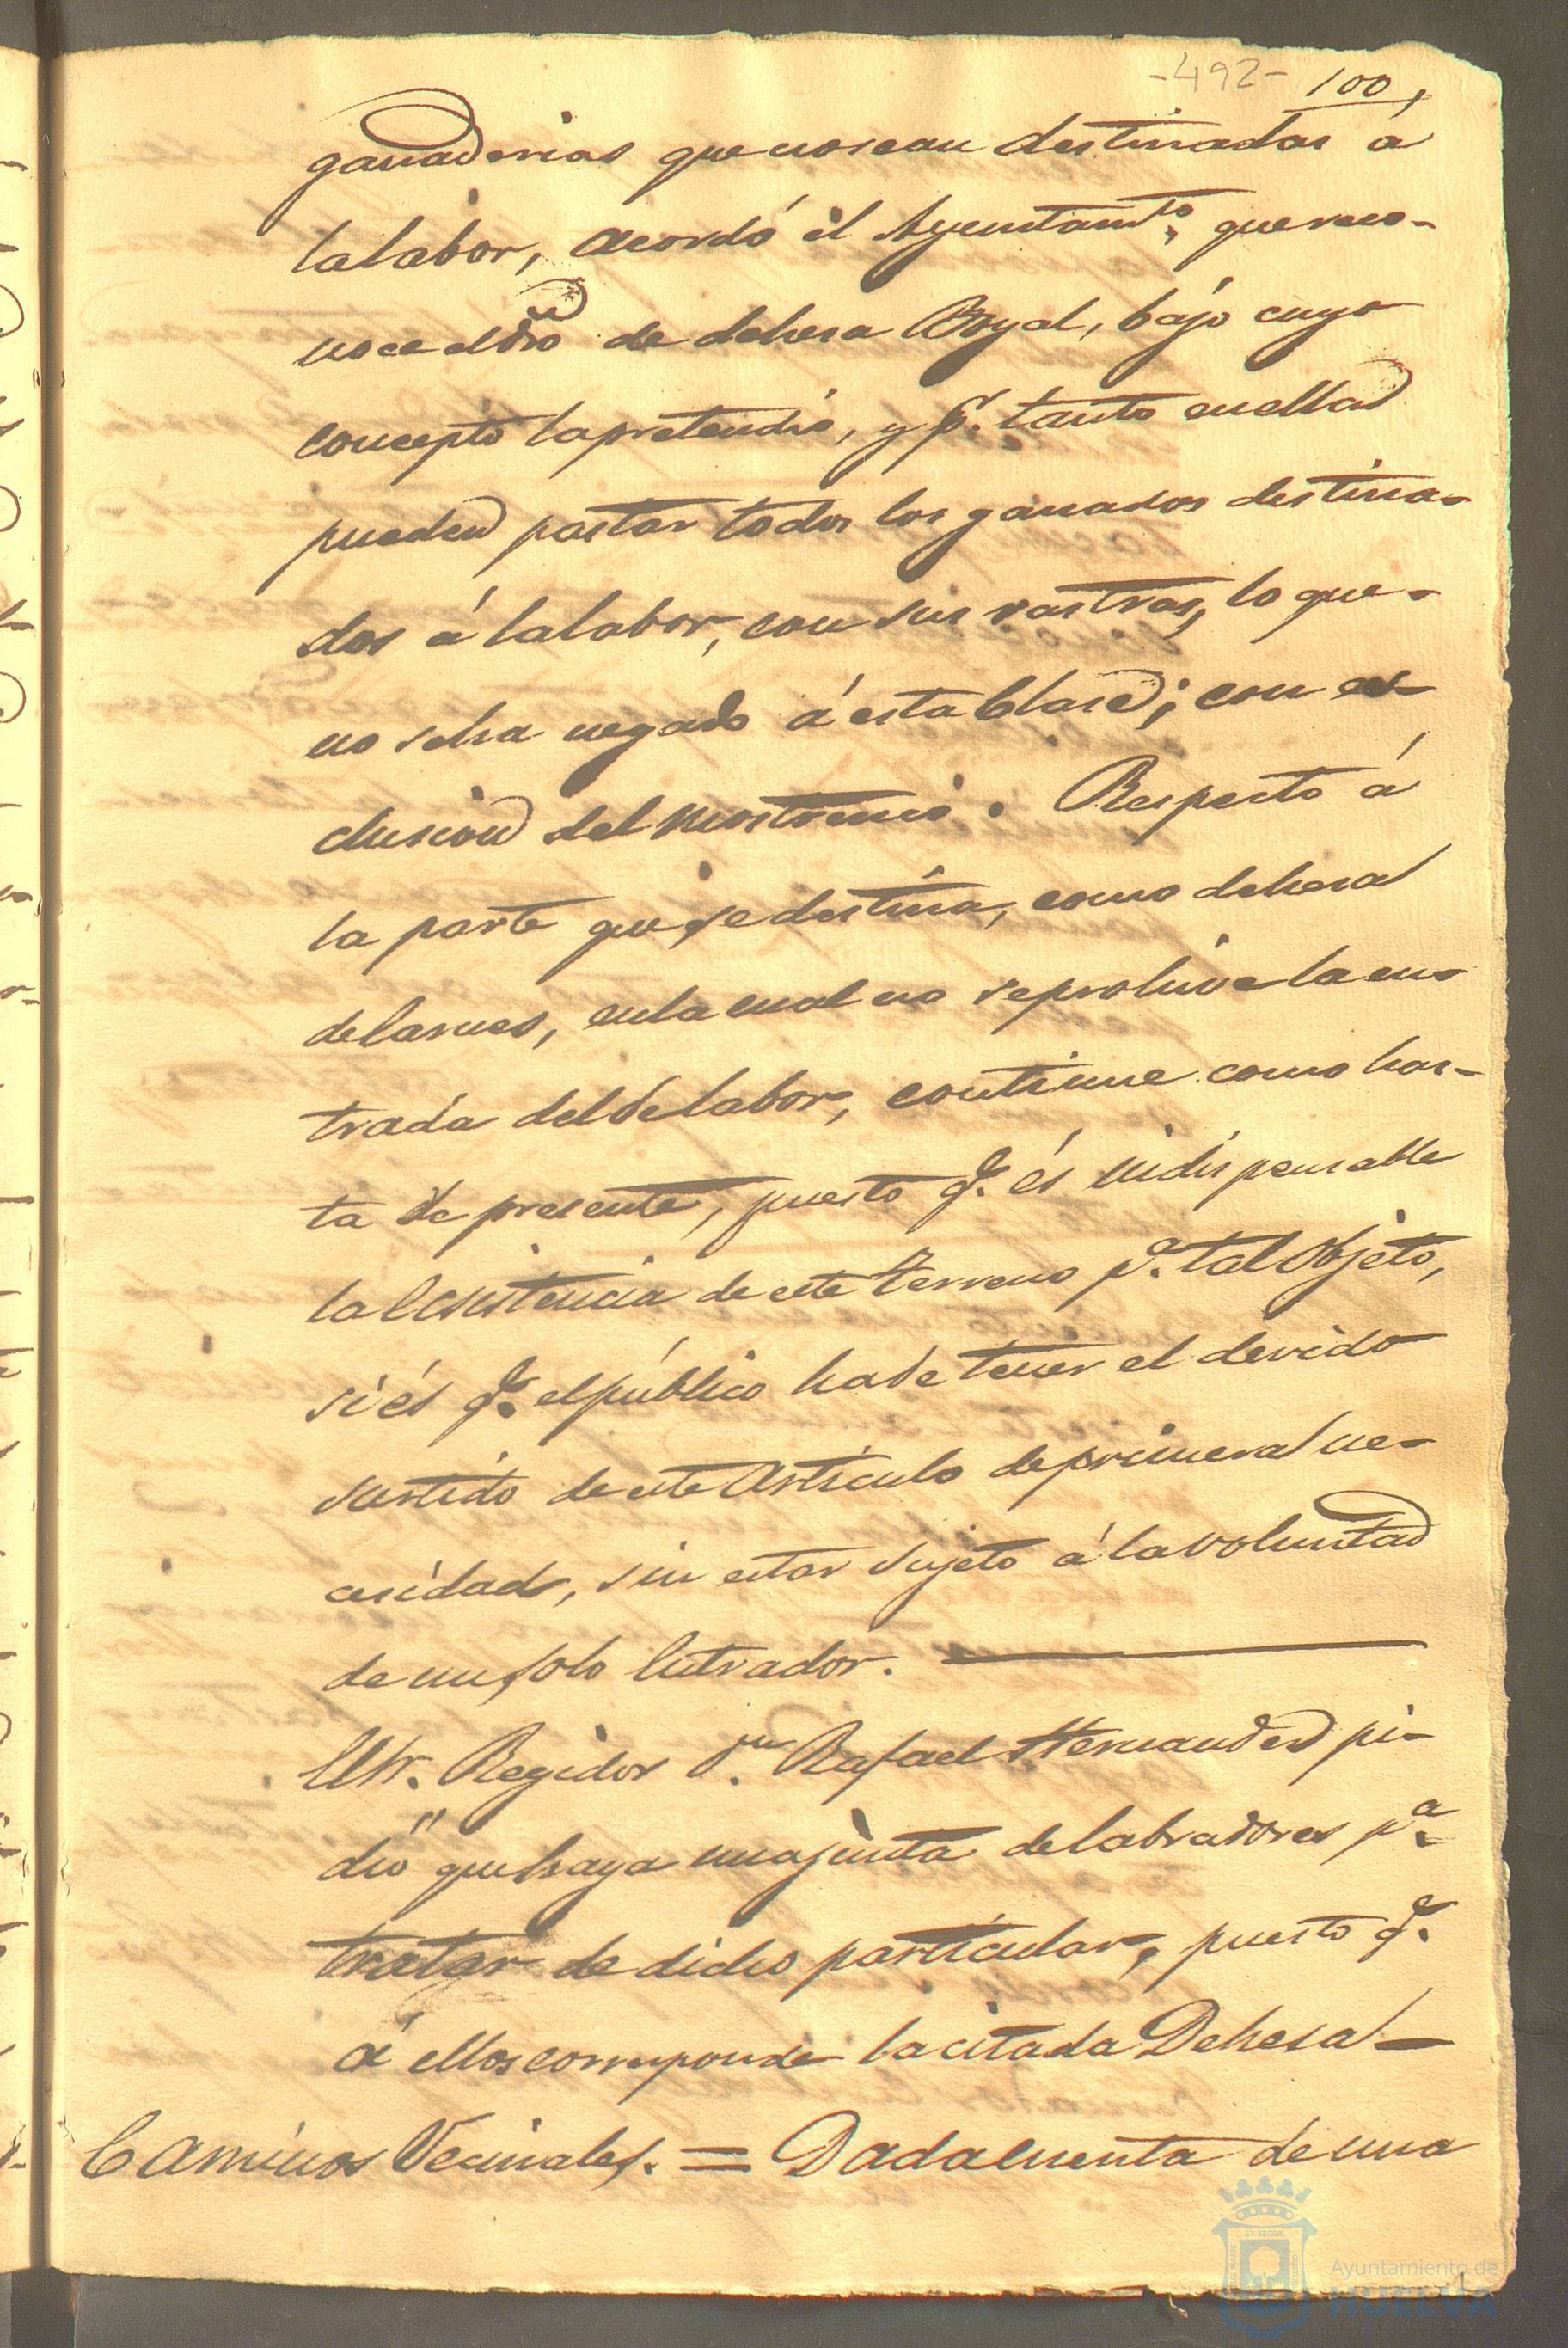 -492- 100,
ganaderias que no sean destinadas á
la labor, acordó él Ayuntamto, que reco-
noce el dro de dehesa Boyal, bájo cuyo
concepto la pretendió, y pr. tanto en ella
pueden pastar todos los ganados destina-
dos á la labor, con sus rastras, lo que-
no se ha negado á esta Clase; con es-
clusion del mostrenco. Respecto á
la parte que se destina, como dehesa
de larnes, en la cual no se prohive la en-
trada del de labor, continue como has-
ta de presente, puesto q.e és indispensable
la Ecsistencia de este terreno p.a tal Objeto,
si és q.e el público ha de tener el devido
surtido de este Artículo de primera ne-
cesidad, sin estar sujeto á la voluntad
de un solo Entrador.
El Sr. Regidor Dn. Rafael Hernandez pi-
dió que haya una junta de labradores p.a
tratar de dicho particular, puesto q.e
á ellos corresponde la citada Dehesa —
Caminos Vecinales. = Dada Cuenta de una
Ayuntamiento de
HUELVA